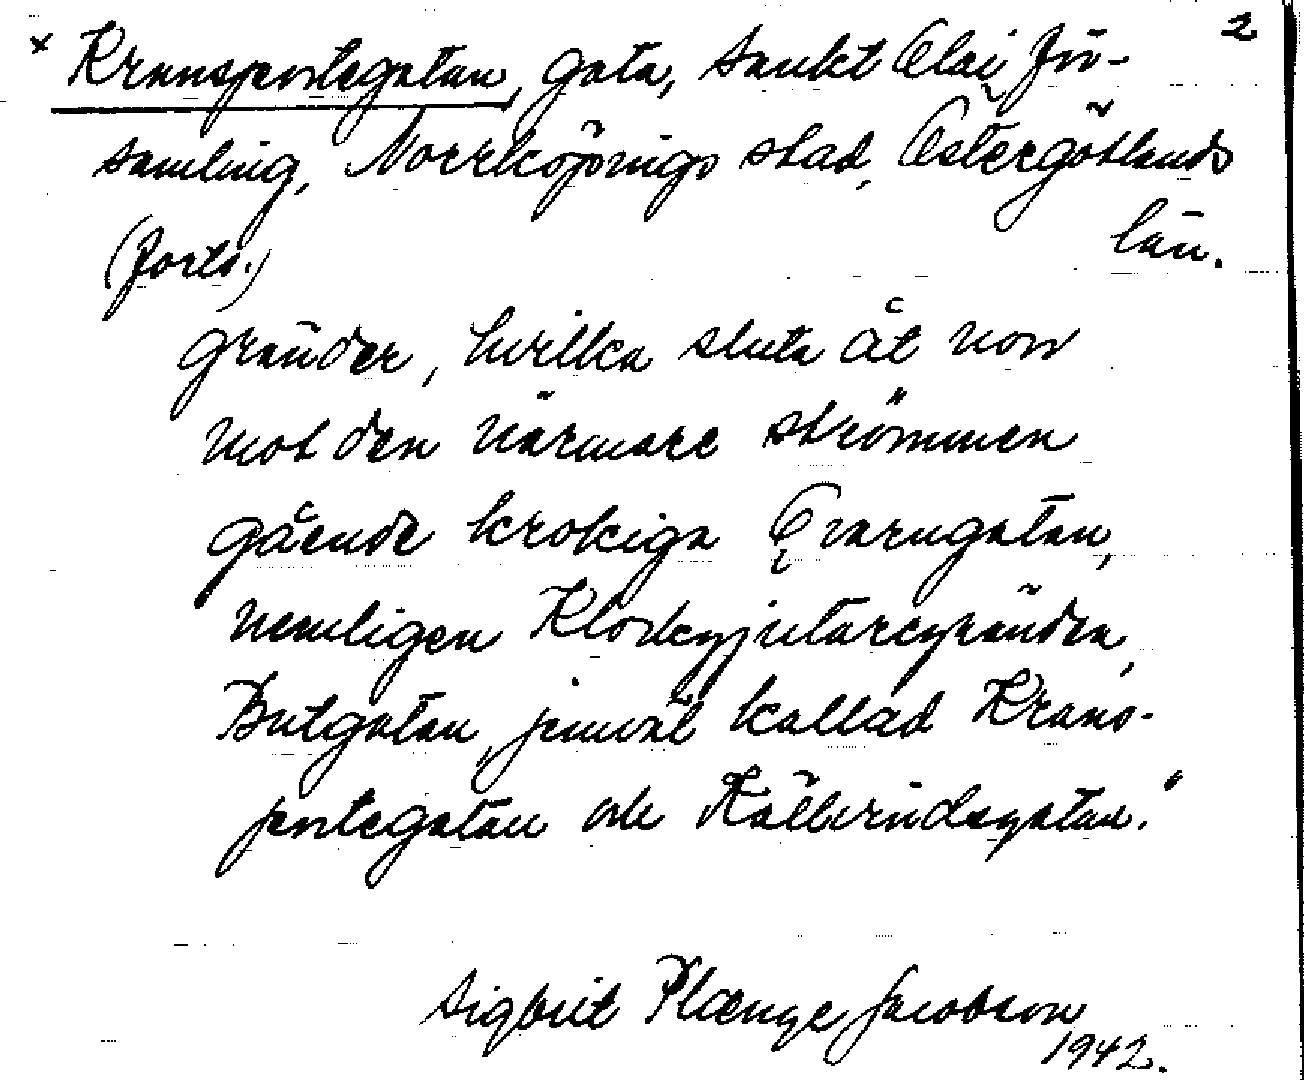 2
× Kransportegatan, gata, Sankt Olai för-
samling, Norrköpings stad, Östergötlands
län.
(forts.)
gränder, hvilka sluta åt norr
mot den närmare strömmen
gående krokiga Qvarngatan,
nemligen Klockgjutaregränden,
Butgatan, jemväl kallad Krans-
portegatan och Källvindsgatan."
Sigbrit Plænge Jacobson
1942.